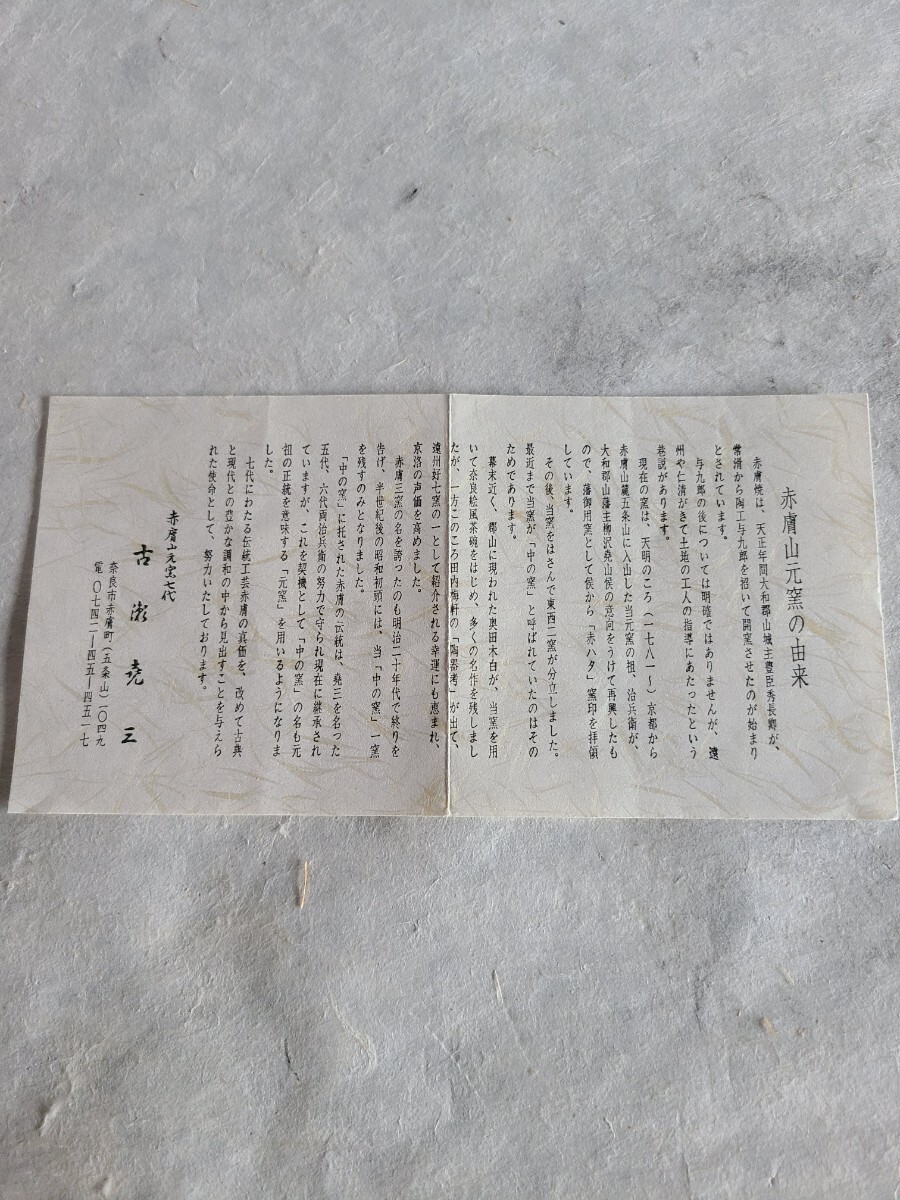 赤膚山元窯の由来
赤膚焼は、天正年間大和郡山城主豊臣秀長郷が、
常滑から陶工与九郎を招いて開窯させたのが始まり
とされています。
与九郎の後については明確ではありませんが、遠
州や仁清がきて土地の工人の指導にあたったという
巷説があります。
現在の窯は、天明のころ（一七八一～）京都から
赤膚山麓五条山に入山した当元窯の祖、治兵衛が、
大和郡山藩主柳沢堯山侯の意向をうけて再興したも
ので、藩御用窯として侯から「赤ハタ」窯印を拝領
しています。
その後、当窯をはさんで東西二窯が分立しました。
最近まで当窯が、「中の窯」と呼ばれていたのはその
ためであります。
幕末近く、郡山に現われた奥田木白が、当窯を用
いて奈良絵風茶碗をはじめ、多くの名作を残しまし
たが、一方このころ田内梅軒の「陶器考」が出て、
遠州好七窯の一として紹介される幸運にも恵まれ、
京洛の声価を高めました。
赤膚三窯の名を誇ったのも明治二十年代で終りを
告げ、半世紀後の昭和初頭には、当「中の窯」一窯
を残すのみとなりました。
「中の窯」に托された赤膚の伝統は、堯三を名った
五代、六代両治兵衛の努力で守られ現在に継承され
ていますが、これを契機として「中の窯」の名も元
祖の正統を意味する「元窯」を用いるようになりま
した。
七代にわたる伝統工芸赤膚の真価を、改めて古典
と現代との豊かな調和の中から見出すことを与えら
れた使命として、努力いたしております。
赤膚山元窯七代
古瀬堯三
奈良市赤膚町（五条山）一〇四九
電〇七四二ー四五ー四五一七